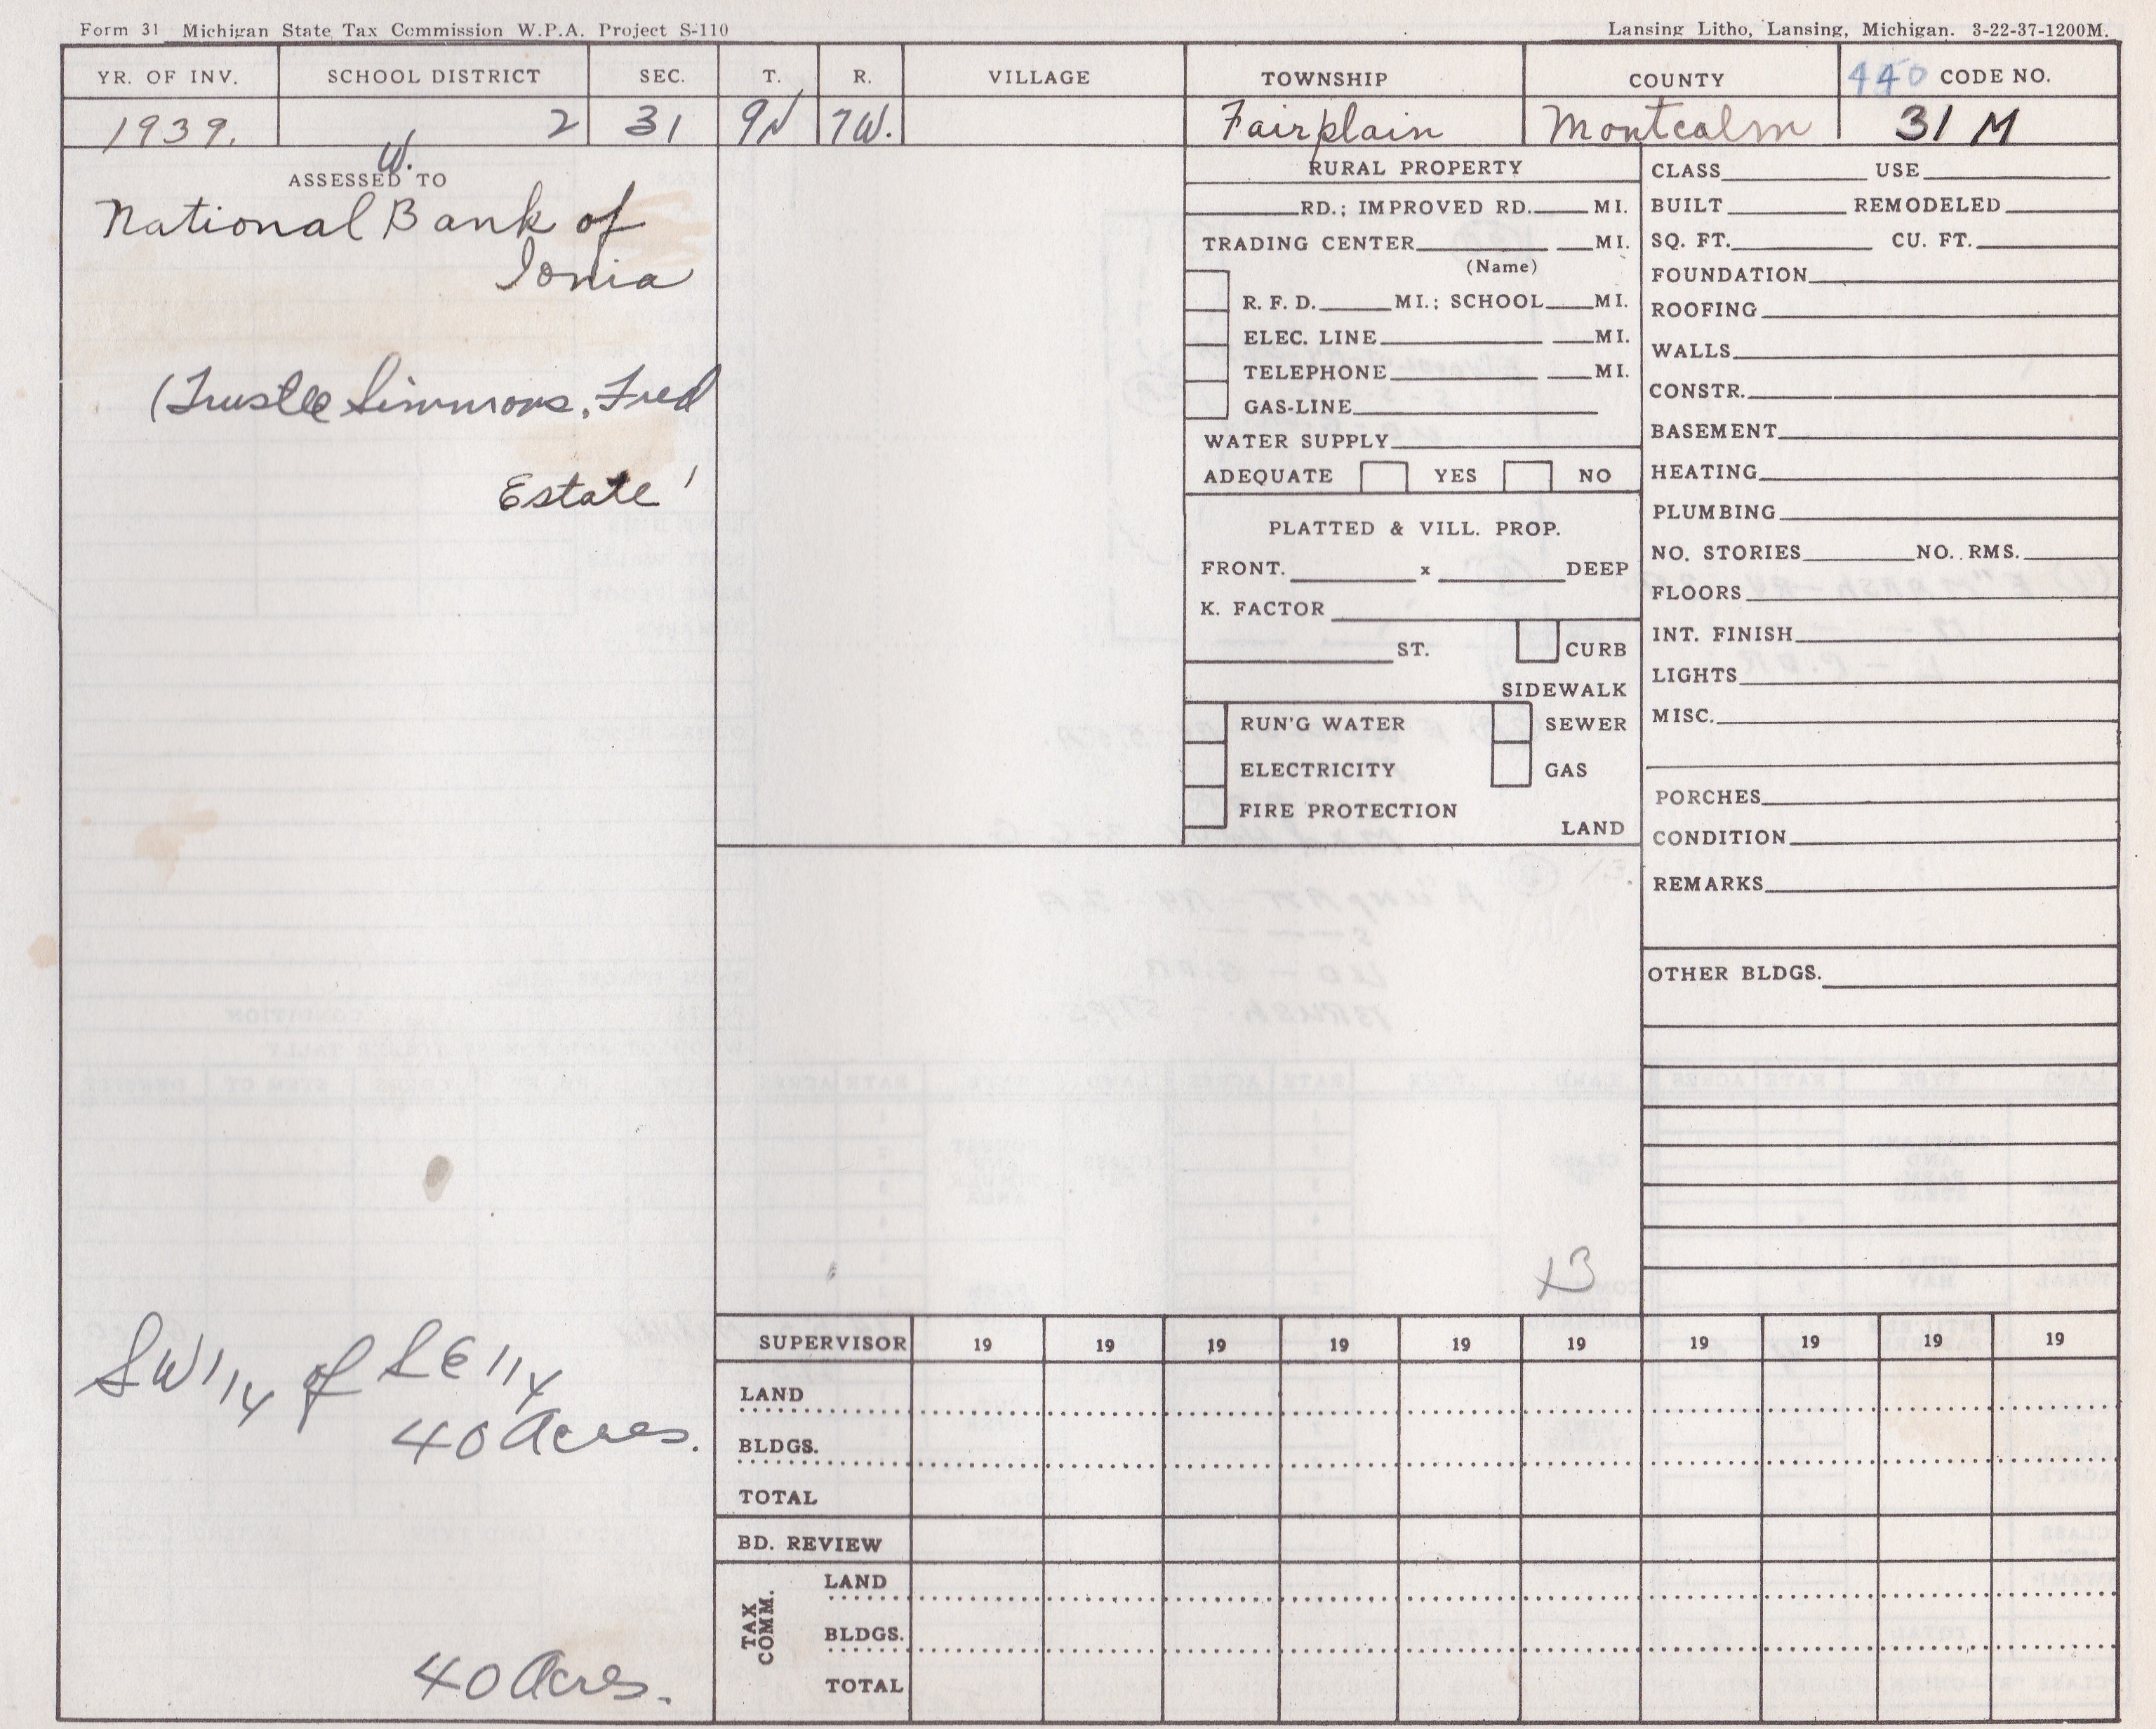 Form 31 Michigan State Tax Commission W.P.A. Project S-110
Lansing Litho, Lansing, Michigan. 3-22-37-1200M.
YR. OF INV. SCHOOL DISTRICT SEC. T. R. VILLAGE TOWNSHIP COUNTY 440 CODE NO.
1939. 2 31 9N 7W. Fairplain Montcalm 31 M
W.
ASSESSED TO
National Bank of
Ionia
(Trustee Simmons, Fred
Estate)
SW 1/4 of SE 1/4
40 Acres.
40 Acres.
RURAL PROPERTY
RD.; IMPROVED RD. MI.
TRADING CENTER MI.
(Name)
R. F. D. MI.; SCHOOL MI.
ELEC. LINE MI.
TELEPHONE MI.
GAS-LINE
WATER SUPPLY
ADEQUATE YES NO
PLATTED & VILL. PROP.
FRONT. x DEEP
K. FACTOR
ST. CURB
SIDEWALK
RUN'G WATER SEWER
ELECTRICITY GAS
FIRE PROTECTION
LAND
CLASS USE
BUILT REMODELED
SQ. FT. CU. FT.
FOUNDATION
ROOFING
WALLS
CONSTR.
BASEMENT
HEATING
PLUMBING
NO. STORIES NO. RMS.
FLOORS
INT. FINISH
LIGHTS
MISC.
PORCHES
CONDITION
REMARKS
OTHER BLDGS.
SUPERVISOR 19 19 19 19 19 19 19 19 19 19
LAND
BLDGS.
TOTAL
BD. REVIEW
TAX COMM.
LAND
BLDGS.
TOTAL